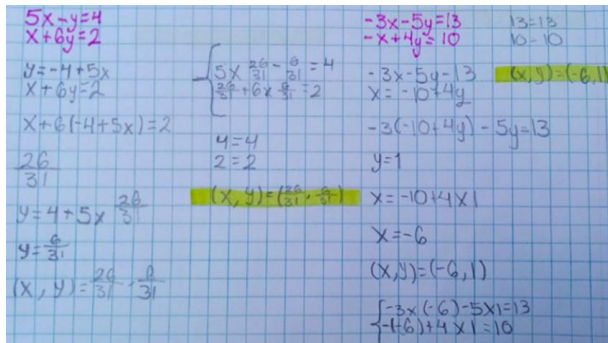 5x-y=4
x+6y=2
y=-4+5x
x+6y=2
x+6(-4+5x)=2
26/31
y=4+5x 26/31
y=6/31
(x, y)=26/31 · 6/31
5x 26/31 - 6/31 =4
26/31 +6x 6/31 =2
4=4
2=2
(x, y)=(26/31 · 6/31)
-3x-5y=13
-x+4y=10
-3x-5y-13
x=-10+4y
-3(-10+4y)-5y=13
y=1
x=-10+4x1
x=-6
(x,y)=(-6,1)
-3x(-6)-5x1=13
-(-6)+4x1=10
13=13
10-10
(x, y)=(-6,1)